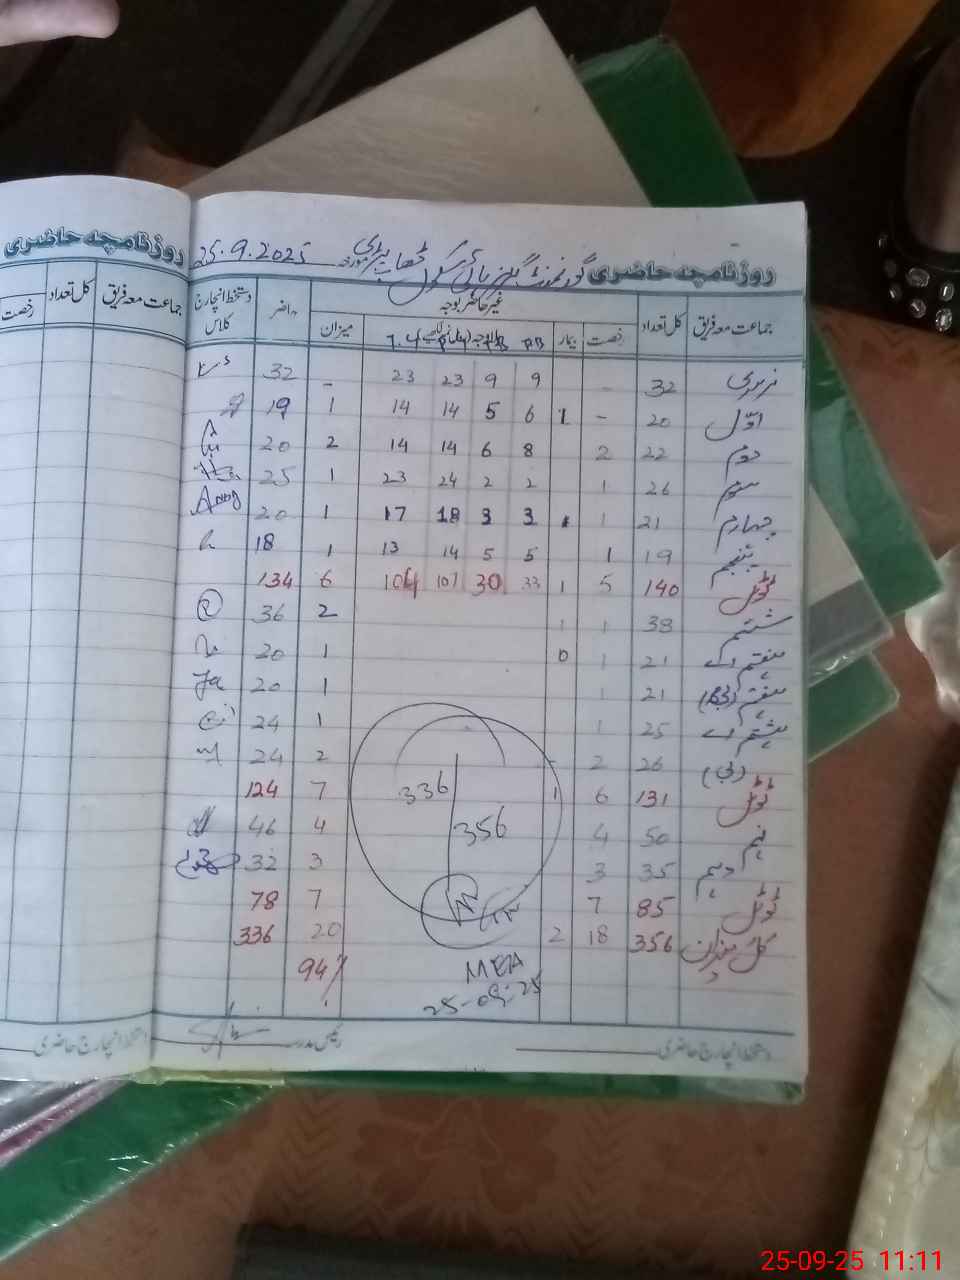 روزنامچہ حاضری گورنمنٹ گرلز ہائی سکول 25.9.2025
جماعت معہ فریق کل تعداد رخصت بیمار غیر حاضر بوجہ میزان حاضر دستخط انچارج کلاس
نرسری 32 - 9 9 23 23 - 32
اوّل 20 - 1 6 5 14 14 1 19
دوم 22 2 8 6 14 14 2 20
سوم 26 1 2 2 24 23 1 25
چہارم 21 1 3 3 18 17 1 20
پنجم 19 1 5 5 14 13 1 18
ٹوٹل 140 5 1 33 30 107 104 6 134
ششم 38 1 1 2 36
ہفتم اے 21 1 0 1 20
ہفتم (بی) 21 1 1 20
ہشتم اے 25 1 1 24
(بی) 26 2 - 2 24
ٹوٹل 131 6 1 7 124
نہم 50 4 4 46
دہم 35 3 3 32
ٹوٹل 85 7 7 78
کل میزان 356 18 2 20 336
94%
336
356
MEA
25-09-25
دستخط انچارج حاضری رئیس مدرسہ
روزنامچہ حاضری
جماعت معہ فریق کل تعداد رخصت
دستخط انچارج حاضری
25-09-25 11:11